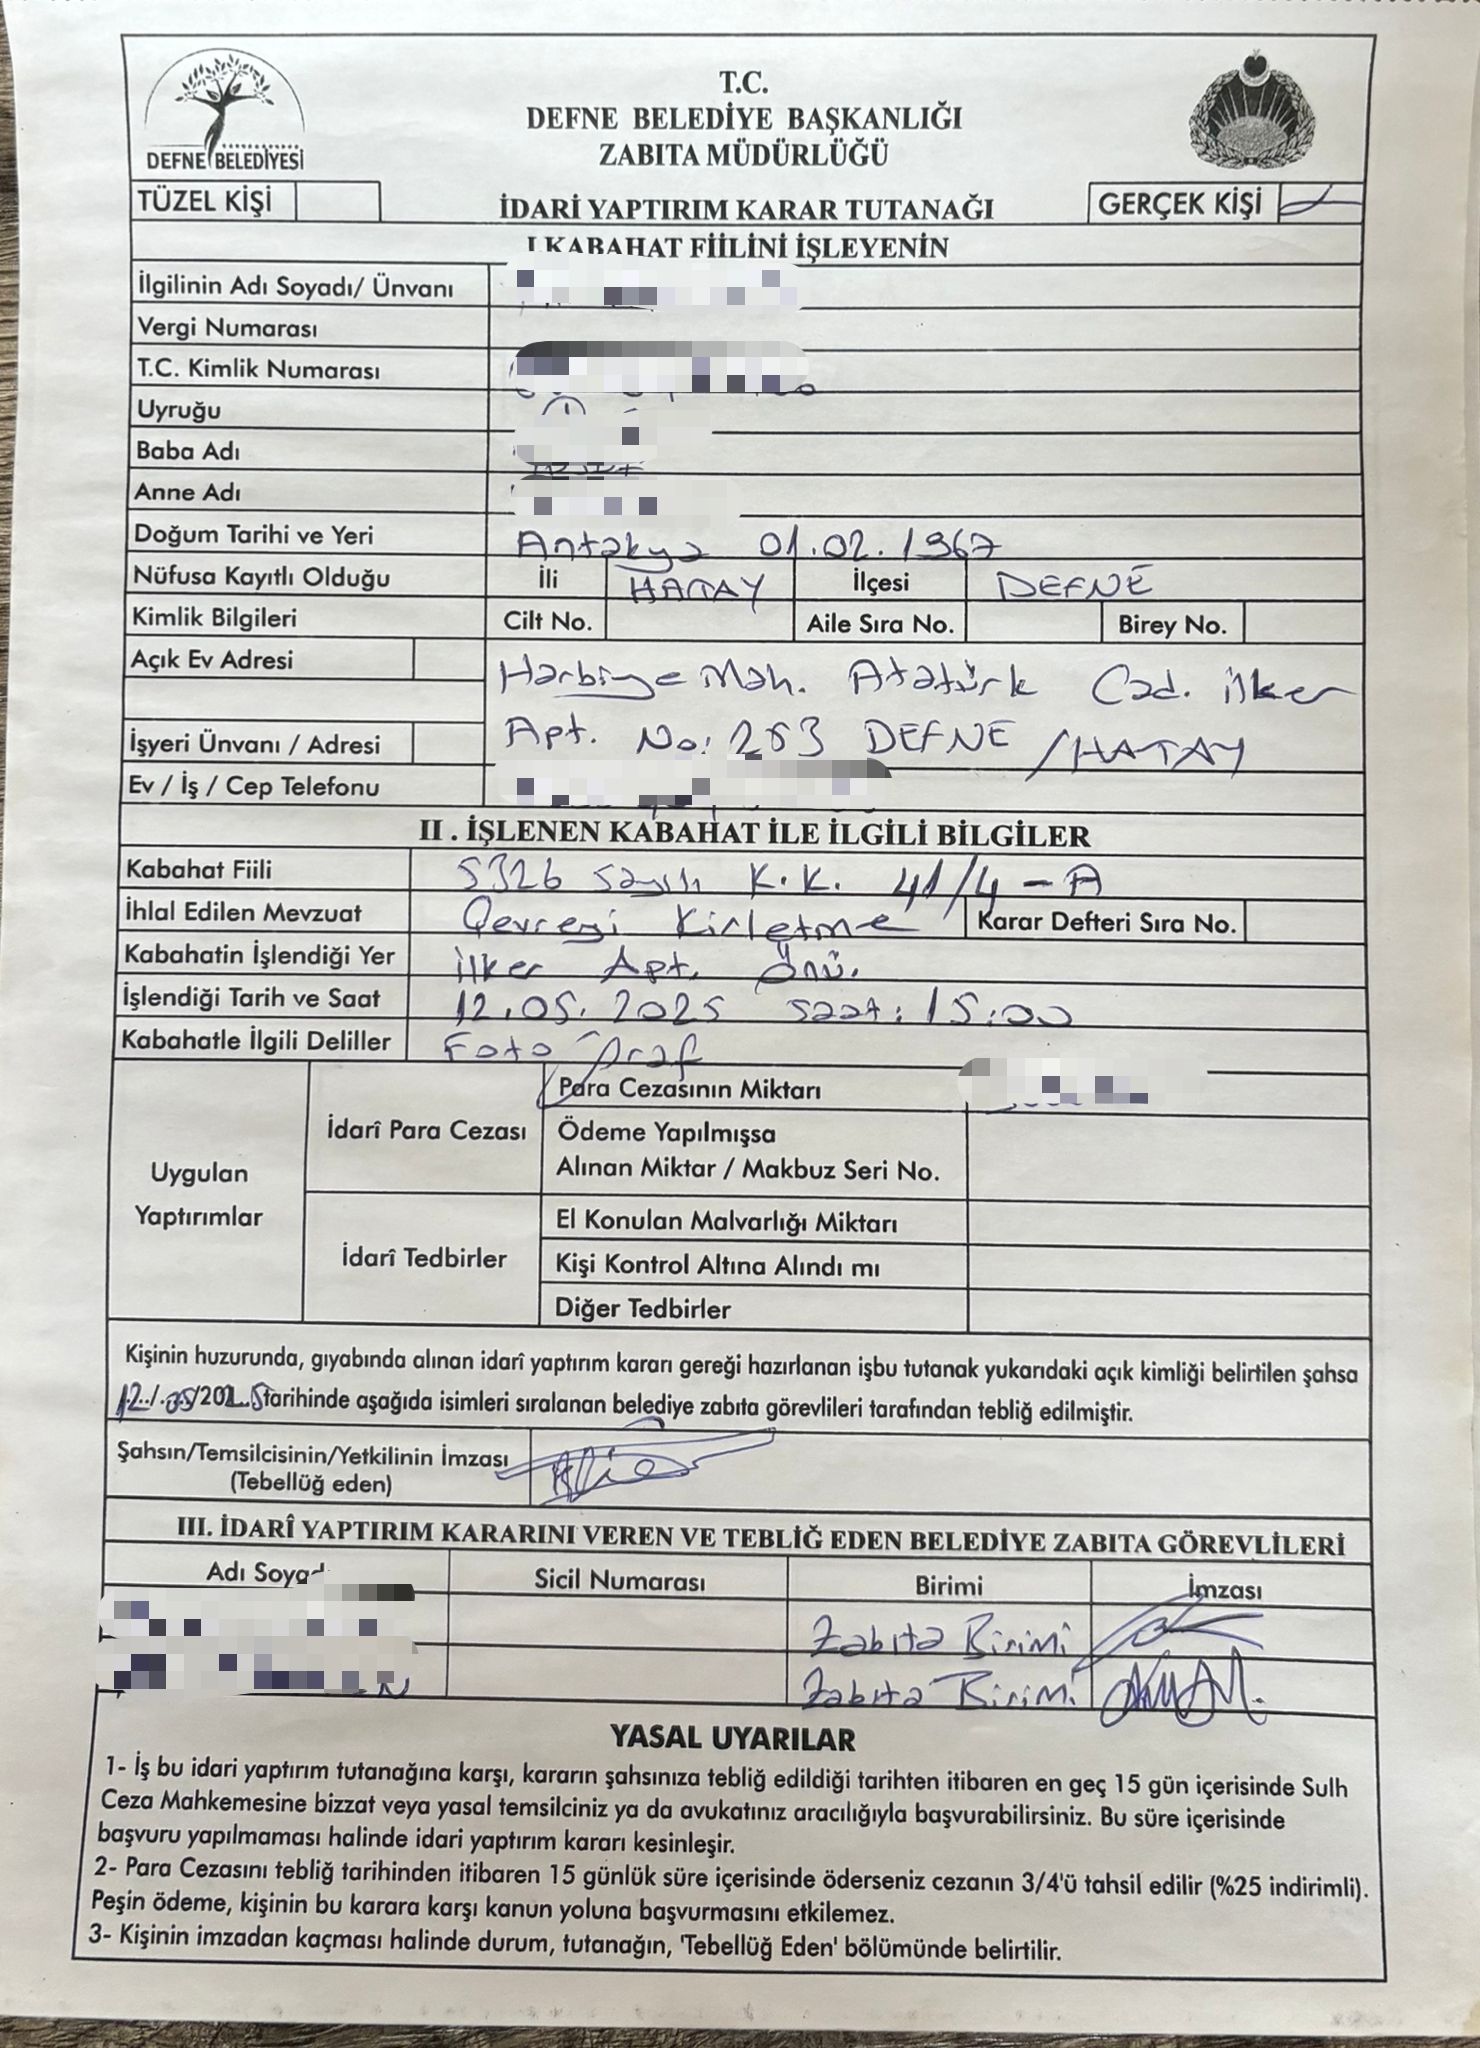 T.C.
DEFNE BELEDİYE BAŞKANLIĞI
ZABITA MÜDÜRLÜĞÜ
DEFNE BELEDİYESİ
TÜZEL KİŞİ
İDARİ YAPTIRIM KARAR TUTANAĞI
GERÇEK KİŞİ
I.KABAHAT FİİLİNİ İŞLEYENİN
İlgilinin Adı Soyadı/ Ünvanı
Vergi Numarası
T.C. Kimlik Numarası
Uyruğu
Baba Adı
Anne Adı
Doğum Tarihi ve Yeri Antakya 01.02.1967
Nüfusa Kayıtlı Olduğu İli HATAY İlçesi DEFNE
Kimlik Bilgileri Cilt No. Aile Sıra No. Birey No.
Açık Ev Adresi Harbiye Mah. Atatürk Cad. ilker
İşyeri Ünvanı / Adresi Apt. No: 283 DEFNE /HATAY
Ev / İş / Cep Telefonu
II . İŞLENEN KABAHAT İLE İLGİLİ BİLGİLER
Kabahat Fiili 5326 sayılı K.K. 41/4-A
İhlal Edilen Mevzuat Çevreyi Kirletme Karar Defteri Sıra No.
Kabahatin İşlendiği Yer ilker Apt. Önü.
İşlendiği Tarih ve Saat 12.05.2025 saat: 15:00
Kabahatle İlgili Deliller Fotoğraf
Uygulan
Yaptırımlar
İdarî Para Cezası
Para Cezasının Miktarı
Ödeme Yapılmışsa
Alınan Miktar / Makbuz Seri No.
İdarî Tedbirler
El Konulan Malvarlığı Miktarı
Kişi Kontrol Altına Alındı mı
Diğer Tedbirler
Kişinin huzurunda, gıyabında alınan idarî yaptırım kararı gereği hazırlanan işbu tutanak yukarıdaki açık kimliği belirtilen şahsa
12/05/2025 tarihinde aşağıda isimleri sıralanan belediye zabıta görevlileri tarafından tebliğ edilmiştir.
Şahsın/Temsilcisinin/Yetkilinin İmzası
(Tebellüğ eden)
III. İDARÎ YAPTIRIM KARARINI VEREN VE TEBLİĞ EDEN BELEDİYE ZABITA GÖREVLİLERİ
Adı Soyadı Sicil Numarası Birimi İmzası
Zabıta Birimi
Zabıta Birimi
YASAL UYARILAR
1- İş bu idari yaptırım tutanağına karşı, kararın şahsınıza tebliğ edildiği tarihten itibaren en geç 15 gün içerisinde Sulh
Ceza Mahkemesine bizzat veya yasal temsilciniz ya da avukatınız aracılığıyla başvurabilirsiniz. Bu süre içerisinde
başvuru yapılmaması halinde idari yaptırım kararı kesinleşir.
2- Para Cezasını tebliğ tarihinden itibaren 15 günlük süre içerisinde öderseniz cezanın 3/4'ü tahsil edilir (%25 indirimli).
Peşin ödeme, kişinin bu karara karşı kanun yoluna başvurmasını etkilemez.
3- Kişinin imzadan kaçması halinde durum, tutanağın, 'Tebellüğ Eden' bölümünde belirtilir.